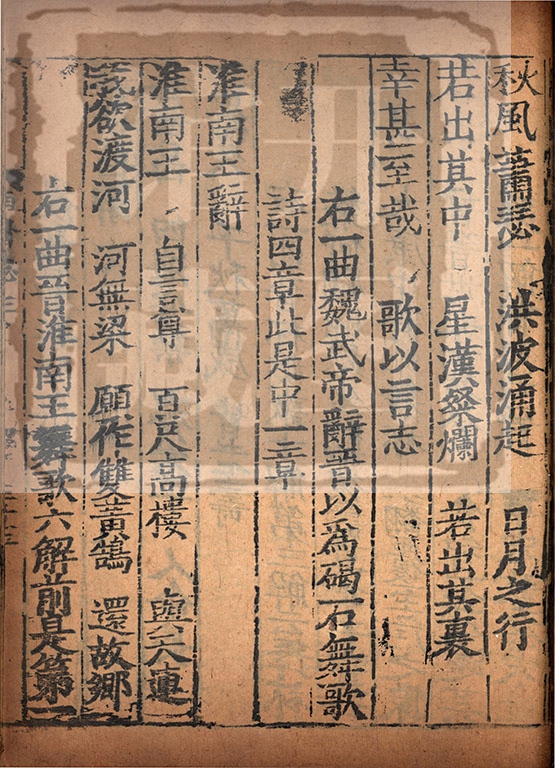 秋風蕭瑟 洪波涌起 日月之行
若出其中 星漢粲爛 若出其裏
幸甚至哉 歌以言志
右一曲魏武帝辭晉以為碣石舞歌
詩四章此是中一章
淮南王辭
淮南王 自言尊 百尺高樓 與天連
我欲渡河 河無梁 願作雙黃鵠 還故鄉
右一曲晉淮南王舞歌六解前是第一